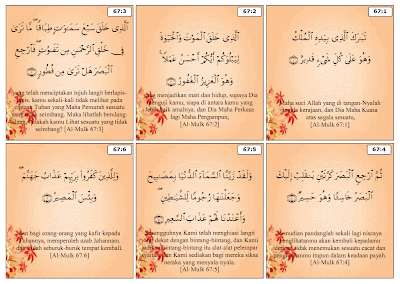 67:1
تَبَارَكَ ٱلَّذِى بِيَدِهِ ٱلْمُلْكُ
وَهُوَ عَلَىٰ كُلِّ شَىْءٍ قَدِيرٌ ١
Maha suci Allah yang di tangan-Nyalah
segala kerajaan, dan Dia Maha Kuasa
atas segala sesuatu,
[Al-Mulk 67:1]
67:2
ٱلَّذِى خَلَقَ ٱلْمَوْتَ وَٱلْحَيَوٰةَ
لِيَبْلُوَكُمْ أَيُّكُمْ أَحْسَنُ عَمَلًا ۚ
وَهُوَ ٱلْعَزِيزُ ٱلْغَفُورُ ٢
yang menjadikan mati dan hidup, supaya Dia
menguji kamu, siapa di antara kamu yang
lebih baik amalnya. dan Dia Maha Perkasa
lagi Maha Pengampun,
[Al-Mulk 67:2]
67:3
ٱلَّذِى خَلَقَ سَبْعَ سَمَٰوَٰتٍ طِبَاقًا ۖ مَّا تَرَىٰ
فِى خَلْقِ ٱلرَّحْمَٰنِ مِن تَفَٰوُتٍ ۖ فَٱرْجِعِ
ٱلْبَصَرَ هَلْ تَرَىٰ مِن فُطُورٍ ٣
yang telah menciptakan tujuh langit berlapis-
lapis, kamu sekali-kali tidak melihat pada
ciptaan Tuhan yang Maha Pemurah sesuatu
yang tidak seimbang. Maka lihatlah berulang-
ulang, adakah kamu Lihat sesuatu yang tidak
seimbang? [Al-Mulk 67:3]
67:4
ثُمَّ ٱرْجِعِ ٱلْبَصَرَ كَرَّتَيْنِ يَنقَلِبْ إِلَيْكَ
ٱلْبَصَرُ خَاسِئًا وَهُوَ حَسِيرٌ ٤
Kemudian pandanglah sekali lagi niscaya
penglihatanmu akan kembali kepadamu
dengan tidak menemukan sesuatu cacat dan
penglihatanmu itupun dalam keadaan payah.
[Al-Mulk 67:4]
67:5
وَلَقَدْ زَيَّنَّا ٱلسَّمَآءَ ٱلدُّنْيَا بِمَصَٰبِيحَ
وَجَعَلْنَٰهَا رُجُومًا لِّلشَّيَٰطِينِ ۖ
وَأَعْتَدْنَا لَهُمْ عَذَابَ ٱلسَّعِيرِ ٥
Sesungguhnya Kami telah menghiasi langit
yang dekat dengan bintang-bintang, dan Kami
jadikan bintang-bintang itu alat-alat pelempar
syaitan, dan Kami sediakan bagi mereka siksa
neraka yang menyala-nyala.
[Al-Mulk 67:5]
67:6
وَلِلَّذِينَ كَفَرُوا۟ بِرَبِّهِمْ عَذَابُ جَهَنَّمَ ۖ
وَبِئْسَ ٱلْمَصِيرُ ٦
dan bagi orang-orang yang kafir kepada
Tuhannya, memperoleh azab Jahannam.
dan Itulah seburuk-buruk tempat kembali.
[Al-Mulk 67:6]